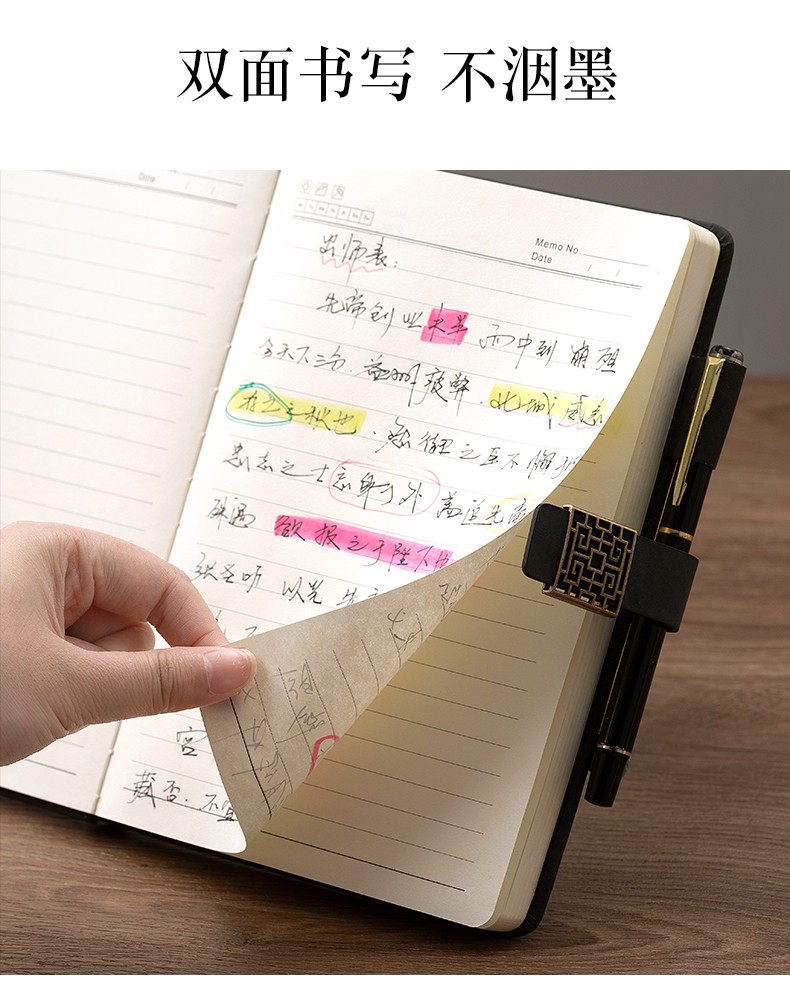 双面书写 不洇墨
Date / /
Memo No.
Date / /
出师表：
先帝创业未半 而中到 崩殂
今天下三分．益州疲弊．此城危急
存亡之秋也．然侍卫之臣不懈于
忠志之士忘身于外 盖追先帝
殊遇 欲报之于陛下也
张圣听 以光 先
宫
臧否．不宜